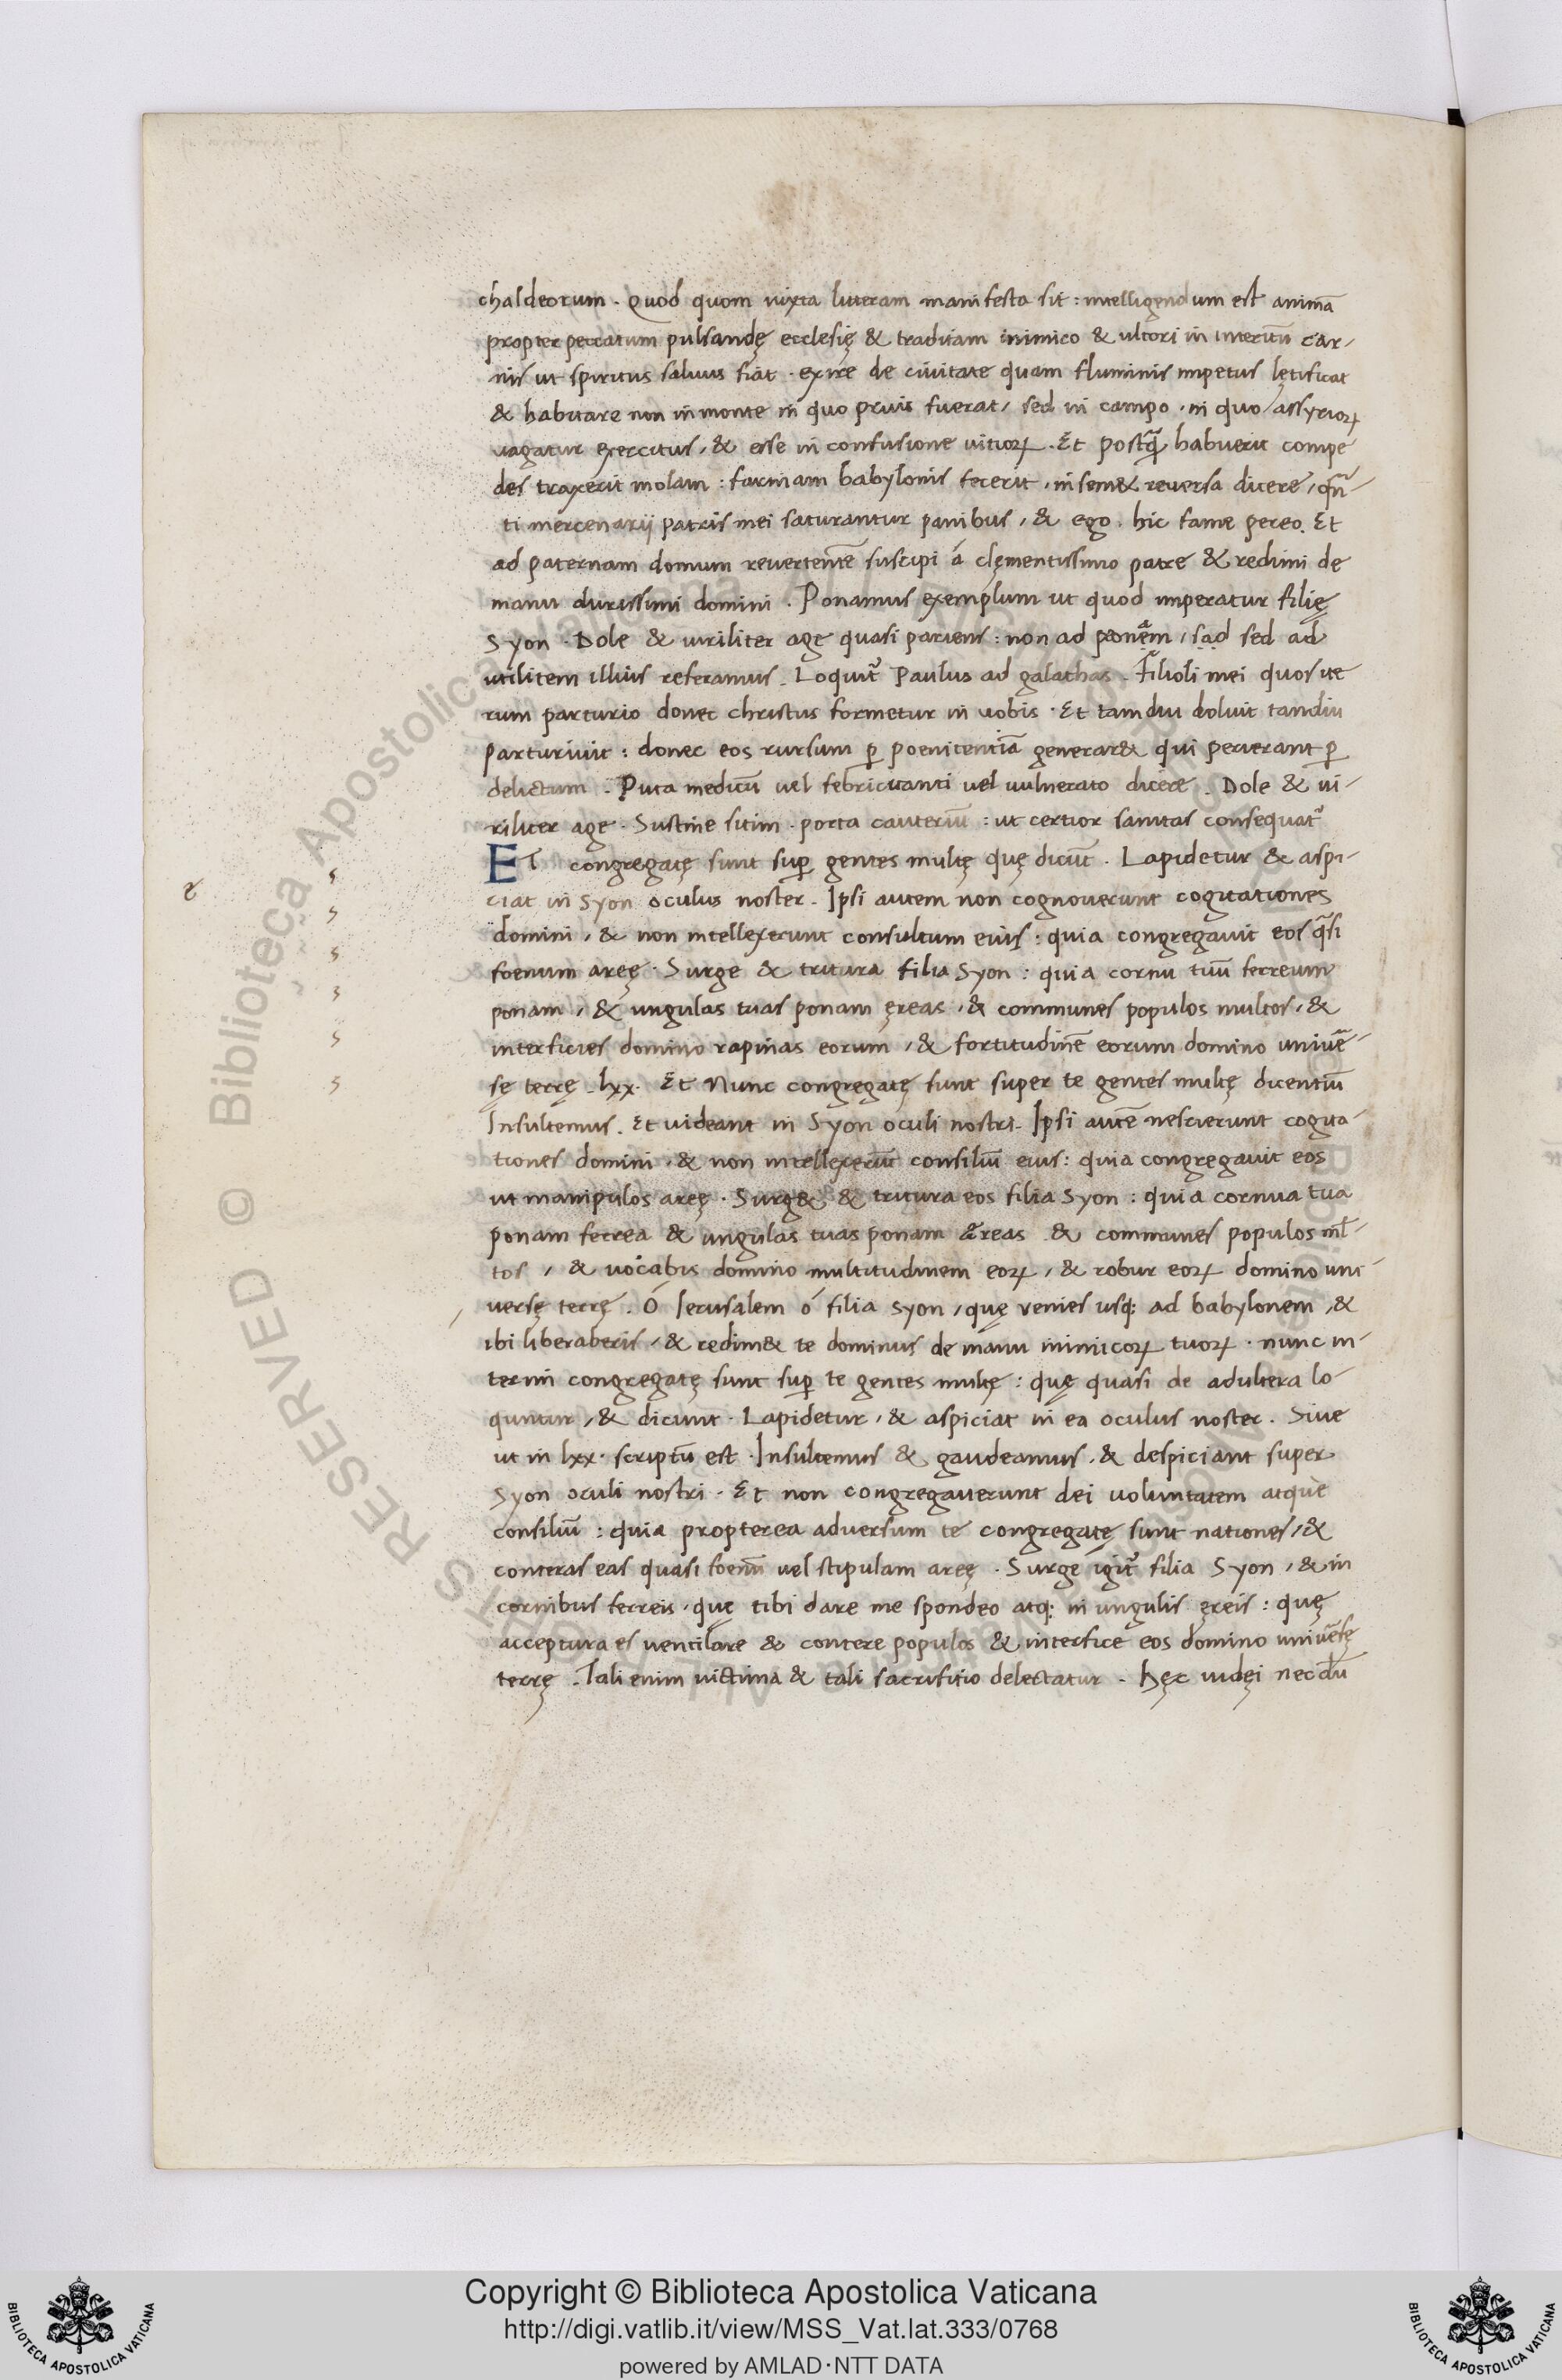 chaldeorum . Quod quom iuxta litteram manifesta sit : intelligendum est animā
propter peccatum pulsandę ecclesię & traditam inimico & ultori in interitū car-
nis ut spiritus salvus fiat . exire de civitate quam fluminis impetus lętificat
& habitare non in monte in quo prius fuerat / sed in campo . in quo / assyrioꝝ
vagatur exercitus , & esse in confusione vitioꝝ . Et postq̄ habuerit compe
des traxerit molam : farinam babylonis fecerit , in sem& reversa dicere / qn̄-
ti mercenarij patris mei saturantur panibus , & ego . hic fame pereo . Et
ad paternam domum revertentē suscipi á clęmentissimo patre & redimi de
manu durissimi domini . Ponamus exemplum ut quod imperatur filię
Syon . Dole & viriliter age quasi pariens : non ad pęnam , sad sed ad
utilitem illius referamus . Loquit᷑ Paulus ad galathas . Filioli mei quos ite
rum parturio donec christus formetur in vobis . Et tamdiu doluit tandiu
parturivit : donec eos rursum ꝑ poenitentiā generar& qui perierant ꝑ
delictum . Puta medicū vel febricitanti vel vulnerato dicere . Dole & vi-
riliter age . Sustine sitim . porta cauteriū : ut certior sanitas consequat᷑
ET congregatę sunt suꝑ gentes multę quę dicūt . Lapidetur & aspi-
ciat in Syon oculus noster . Ipsi autem non cognoverunt cogitationes
domini , & non intellexerunt consultum eius : quia congregavit eos q̄si
foenum aręę . Surge & tritura filia Syon : quia cornu tuū ferreum
ponam , & ungulas tuas ponam ęreas , & communes populos multos , &
interficies domino rapinas eorum , & fortitudinē eorum domino univē-
sę terrę . lxx . Et Nunc congregatę sunt super te gentes multę dicentiū
Insultemus . Et videant in Syon oculi nostri . Ipsi autē nescierunt cogita-
tiones domini , & non intellexerūt consiliū eius : quia congregavit eos
ut manipulos aręę . Surg& & tritura eos filia Syon : quia cornua tua
ponam ferrea & ungulas tuas ponam æreas & communes populos ml̄-
tos , & vocabis domino multitudinem eoꝝ , & robur eoꝝ domino uni-
versę terrę . Ó Ierusalem ó filia Syon , quę venies usq: ad babylonem , &
ibi liberaberis , & redim& te dominus de manu inimicoꝝ tuoꝝ . nunc in-
terim congregatę sunt suꝑ te gentes multę : quę quasi de adultera lo-
quntur , & dicunt . Lapidetur , & aspiciat in ea oculus noster . Sive
ut in lxx . scriptū est . Insultemus & gaudeamus , & despiciant super
Syon oculi nostri . Et non congregaverunt dei voluntatem atque
consiliū : quia propterea adversum te congregatę sunt nationes , &
conteras eas quasi foenū vel stipulam aręę . Surge igit᷑ filia Syon , & in
cornibus ferreis , quę tibi dare me spondeo atq: in ungulis ęreis : quę
acceptura es ventilare & contere populos & interfice eos domino univēsę
terrę . Tali enim victima & tali sacrifitio delectatur . hęc iudęi necdū
Biblioteca Apostolica Vaticana
RESERVED ©
Copyright © Biblioteca Apostolica Vaticana
http://digi.vatlib.it/view/MSS_Vat.lat.333/0768
powered by AMLAD·NTT DATA
BIBLIOTECA APOSTOLICA VATICANA
BIBLIOTECA APOSTOLICA VATICANA